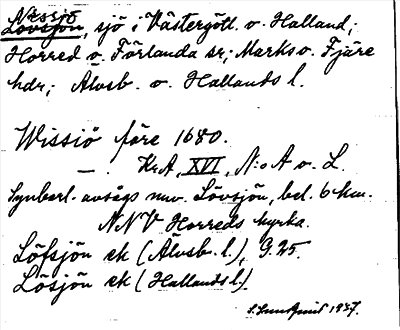 Nässjö
Lövsjön, sjö i Västergötl. o. Halland;
Horred o. Förlanda sr; Marks o. Fjäre
hdr; Älvsb. o. Hallands l.
Wissiö före 1680.
— . KrA, XVI, N:o A o. L.
Synbarl. avsågs nuv. Lövsjön, bel. 6 km.
NNV Horreds kyrka.
Löfsjön ek (Älvsb. l.), G. 25.
Lösjön ek (Hallands l.)
S. Sundqvist 1937.